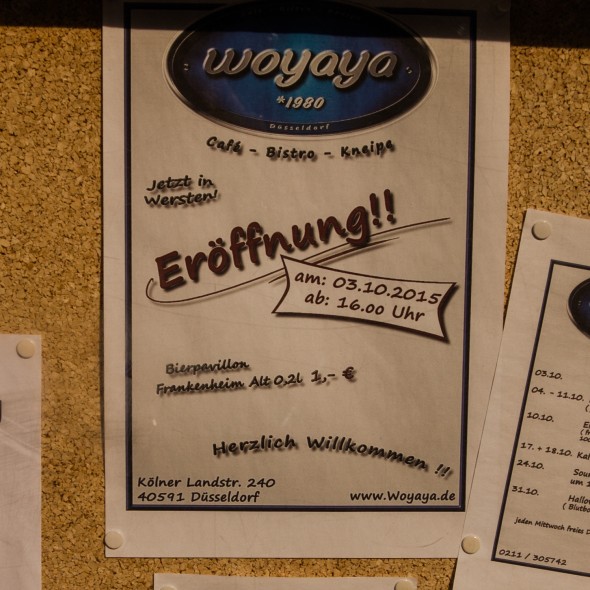 woyaya
*1980
Düsseldorf
Café - Bistro - Kneipe
Jetzt in
Wersten!
Eröffnung!!
am: 03.10.2015
ab: 16.00 Uhr
Bierpavillon
Frankenheim Alt 0,2l 1,- €
Herzlich Willkommen !!
Kölner Landstr. 240
40591 Düsseldorf
www.Woyaya.de
03.10.
04. - 11.10.
10.10.
17. + 18.10.
24.10.
um
31.10.
jeden Mittwoch freies
0211 / 305742